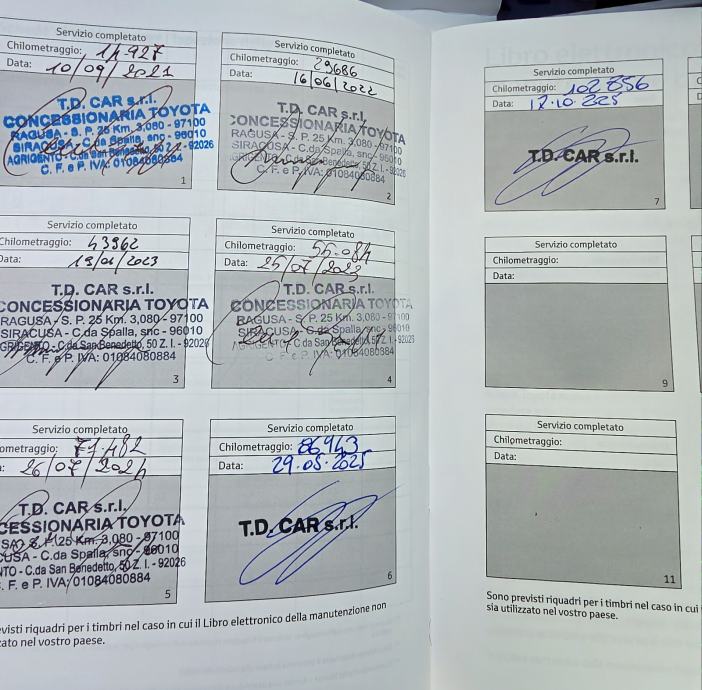 Servizio completato
Chilometraggio: 14.927
Data: 10/09/2021
T.D. CAR s.r.l.
CONCESSIONARIA TOYOTA
RAGUSA - S. P. 25 Km. 3,080 - 97100
SIRACUSA - C.da Spalla, snc - 96010
AGRIGENTO - C.da San Benedetto, 50 Z. I. - 92026
C. F. e P. IVA: 01084080884
1
Servizio completato
Chilometraggio: 29686
Data: 16/06/2022
T.D. CAR s.r.l.
CONCESSIONARIA TOYOTA
RAGUSA - S. P. 25 Km. 3,080 - 97100
SIRACUSA - C.da Spalla, snc - 96010
Benedetto, 50 Z. I. - 92026
C. F. e P. IVA: 01084080884
2
Servizio completato
Chilometraggio: 43962
Data: 2023
T.D. CAR s.r.l.
CONCESSIONARIA TOYOTA
RAGUSA - S. P. 25 Km. 3,080 - 97100
SIRACUSA - C.da Spalla, snc - 96010
C.da San Benedetto, 50 Z. I. - 92026
C. F. e P. IVA: 01084080884
3
Servizio completato
Chilometraggio: 55.084
Data: 25/07/2023
T.D. CAR s.r.l.
CONCESSIONARIA TOYOTA
RAGUSA - S. P. 25 Km. 3,080 - 97100
SIRACUSA - C.da Spalla, snc - 96010
AGRIGENTO - C.da San Benedetto, 50 Z. I. - 92026
C. F. e P. IVA: 01084080884
4
Servizio completato
ometraggio: 71.482
a: 26/07/2024
T.D. CAR s.r.l.
CESSIONARIA TOYOTA
P. 25 Km. 3,080 - 97100
CUSA - C.da Spalla, snc - 96010
NTO - C.da San Benedetto, 50 Z. I. - 92026
C. F. e P. IVA: 01084080884
5
Servizio completato
Chilometraggio: 86943
Data: 29.05.2025
T.D. CAR s.r.l.
6
visti riquadri per i timbri nel caso in cui il Libro elettronico della manutenzione non
zato nel vostro paese.
Servizio completato
Chilometraggio: 102856
Data: 17.10.225
T.D. CAR s.r.l.
7
Servizio completato
Chilometraggio:
Data:
9
Servizio completato
Chilometraggio:
Data:
11
Sono previsti riquadri per i timbri nel caso in cui
sia utilizzato nel vostro paese.